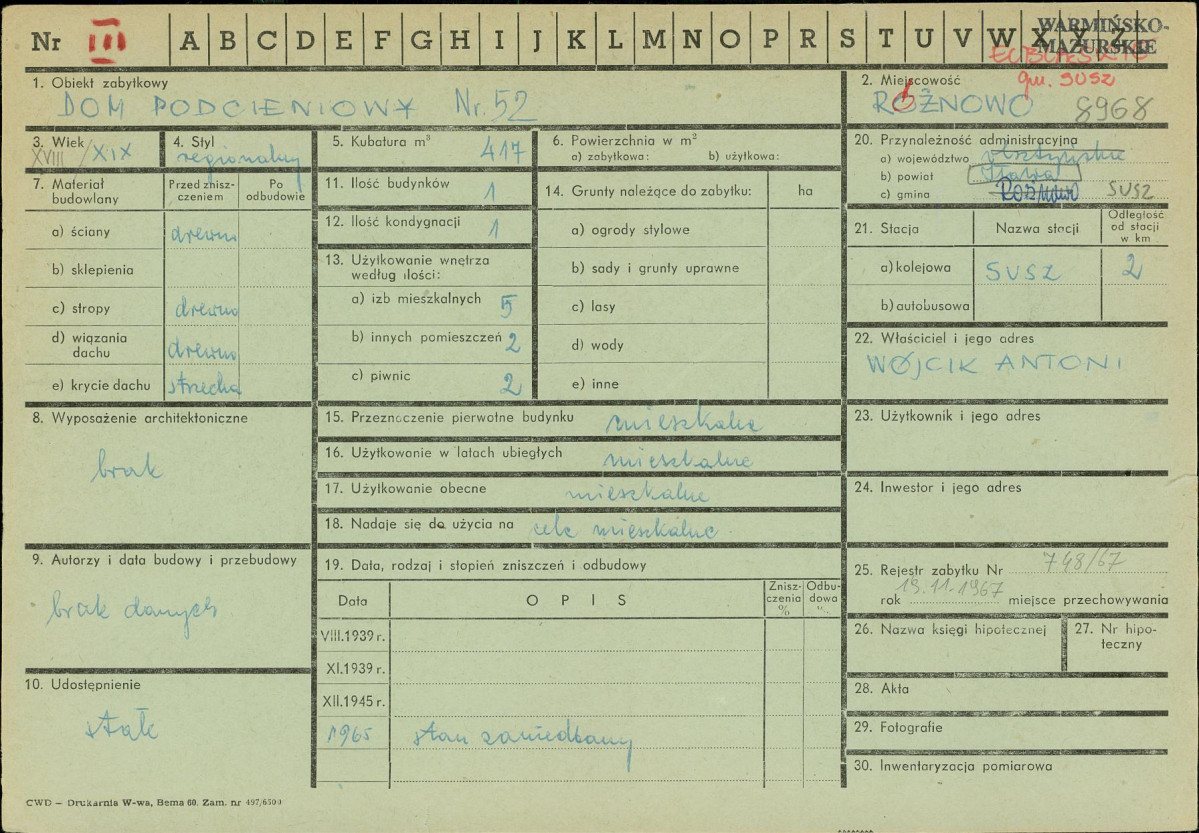 Nr III A B C D E F G H I J K L M N O P R S T U V W X Y Z
WARMIŃSKO-
MAZURSKIE
gm. SUSZ
1. Obiekt zabytkowy
DOM PODCIENIOWY Nr. 52
2. Miejscowość
RÓŻNOWO 8968
3. Wiek
XVIII / XIX
4. Styl
regionalny
5. Kubatura m³
417
6. Powierzchnia w m²
a) zabytkowa: b) użytkowa:
7. Materiał budowlany
Przed zniszczeniem
Po odbudowie
a) ściany drewno
b) sklepienia
c) stropy drewno
d) wiązania dachu drewno
e) krycie dachu strzecha
8. Wyposażenie architektoniczne
brak
9. Autorzy i data budowy i przebudowy
brak danych
10. Udostępnienie
stałe
11. Ilość budynków 1
12. Ilość kondygnacji 1
13. Użytkowanie wnętrza
według ilości:
a) izb mieszkalnych 5
b) innych pomieszczeń 2
c) piwnic 2
14. Grunty należące do zabytku: ha
a) ogrody stylowe
b) sady i grunty uprawne
c) lasy
d) wody
e) inne
15. Przeznaczenie pierwotne budynku mieszkalne
16. Użytkowanie w latach ubiegłych mieszkalne
17. Użytkowanie obecne mieszkalne
18. Nadaje się do użycia na cele mieszkalne
19. Data, rodzaj i stopień zniszczeń i odbudowy
Data OPIS Zniszczenia % Odbudowa %
VIII.1939 r.
XI.1939 r.
XII.1945 r.
1965 stan zaniedbany
20. Przynależność administracyjna
a) województwo olsztyńskie
b) powiat Iława
c) gmina Różnowo SUSZ
21. Stacja Nazwa stacji Odległość od stacji w km
a) kolejowa SUSZ 2
b) autobusowa
22. Właściciel i jego adres
WÓJCIK ANTONI
23. Użytkownik i jego adres
24. Inwestor i jego adres
25. Rejestr zabytku Nr 748/67
rok 19.11.1967 miejsce przechowywania
26. Nazwa księgi hipotecznej
27. Nr hipoteczny
28. Akta
29. Fotografie
30. Inwentaryzacja pomiarowa
CWD — Drukarnia W-wa, Bema 60. Zam. nr 497/6500